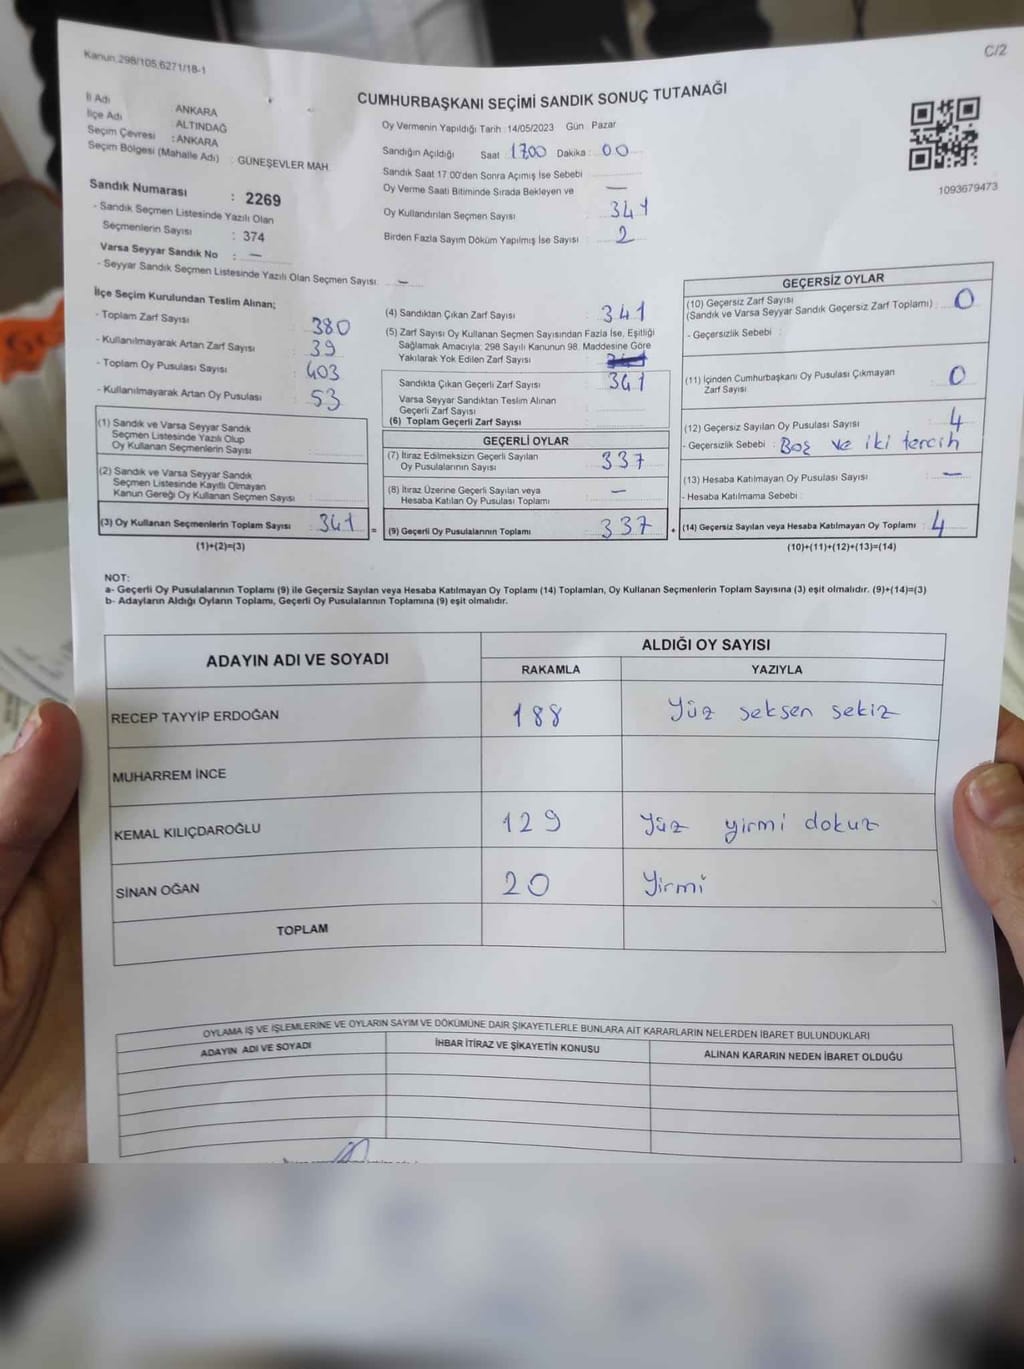 Kanun.298/105,6271/18-1
C/2
CUMHURBAŞKANI SEÇİMİ SANDIK SONUÇ TUTANAĞI
İl Adı : ANKARA
İlçe Adı : ALTINDAĞ
Seçim Çevresi : ANKARA
Seçim Bölgesi (Mahalle Adı) : GÜNEŞEVLER MAH
Sandık Numarası : 2269
- Sandık Seçmen Listesinde Yazılı Olan
Seçmenlerin Sayısı : 374
Varsa Seyyar Sandık No : —
- Seyyar Sandık Seçmen Listesinde Yazılı Olan Seçmen Sayısı : —
Oy Vermenin Yapıldığı Tarih : 14/05/2023 Gün Pazar
Sandığın Açıldığı Saat 17.00 Dakika : 00
Sandık Saat 17:00'den Sonra Açımış İse Sebebi
Oy Verme Saati Bitiminde Sırada Bekleyen ve —
Oy Kullandırılan Seçmen Sayısı 341
Birden Fazla Sayım Döküm Yapılmış İse Sayısı 2
1093679473
İlçe Seçim Kurulundan Teslim Alınan;
- Toplam Zarf Sayısı : 380
- Kullanılmayarak Artan Zarf Sayısı : 39
- Toplam Oy Pusulası Sayısı : 403
- Kullanılmayarak Artan Oy Pusulası : 53
(1) Sandık ve Varsa Seyyar Sandık
Seçmen Listesinde Yazılı Olup
Oy Kullanan Seçmenlerin Sayısı :
(2) Sandık ve Varsa Seyyar Sandık
Seçmen Listesinde Kayıtlı Olmayan
Kanun Gereği Oy Kullanan Seçmen Sayısı :
(3) Oy Kullanan Seçmenlerin Toplam Sayısı : 341 =
(1)+(2)=(3)
(4) Sandıktan Çıkan Zarf Sayısı : 341
(5) Zarf Sayısı Oy Kullanan Seçmen Sayısından Fazla İse, Eşitliği
Sağlamak Amacıyla, 298 Sayılı Kanunun 98. Maddesine Göre
Yakılarak Yok Edilen Zarf Sayısı
Sandıkta Çıkan Geçerli Zarf Sayısı : 341
Varsa Seyyar Sandıktan Teslim Alınan
Geçerli Zarf Sayısı
(6) Toplam Geçerli Zarf Sayısı :
GEÇERLİ OYLAR
(7) İtiraz Edilmeksizin Geçerli Sayılan
Oy Pusulalarının Sayısı : 337
(8) İtiraz Üzerine Geçerli Sayılan veya —
Hesaba Katılan Oy Pusulası Toplamı
(9) Geçerli Oy Pusulalarının Toplamı : 337 +
GEÇERSİZ OYLAR
(10) Geçersiz Zarf Sayısı
(Sandık ve Varsa Seyyar Sandık Geçersiz Zarf Toplamı) : 0
- Geçersizlik Sebebi :
(11) İçinden Cumhurbaşkanı Oy Pusulası Çıkmayan
Zarf Sayısı : 0
(12) Geçersiz Sayılan Oy Pusulası Sayısı : 4
- Geçersizlik Sebebi : Boş ve iki tercih
(13) Hesaba Katılmayan Oy Pusulası Sayısı : —
- Hesaba Katılmama Sebebi :
(14) Geçersiz Sayılan veya Hesaba Katılmayan Oy Toplamı : 4
(10)+(11)+(12)+(13)=(14)
NOT:
a- Geçerli Oy Pusulalarının Toplamı (9) ile Geçersiz Sayılan veya Hesaba Katılmayan Oy Toplamı (14) Toplamları, Oy Kullanan Seçmenlerin Toplam Sayısına (3) eşit olmalıdır. (9)+(14)=(3)
b- Adayların Aldığı Oyların Toplamı, Geçerli Oy Pusulalarının Toplamına (9) eşit olmalıdır.
ADAYIN ADI VE SOYADI
ALDIĞI OY SAYISI
RAKAMLA YAZIYLA
RECEP TAYYİP ERDOĞAN 188 Yüz seksen sekiz
MUHARREM İNCE
KEMAL KILIÇDAROĞLU 129 Yüz yirmi dokuz
SİNAN OĞAN 20 Yirmi
TOPLAM
OYLAMA İŞ VE İŞLEMLERİNE VE OYLARIN SAYIM VE DÖKÜMÜNE DAİR ŞİKAYETLERLE BUNLARA AİT KARARLARIN NELERDEN İBARET BULUNDUKLARI
ADAYIN ADI VE SOYADI İHBAR İTİRAZ VE ŞİKAYETİN KONUSU ALINAN KARARIN NEDEN İBARET OLDUĞU